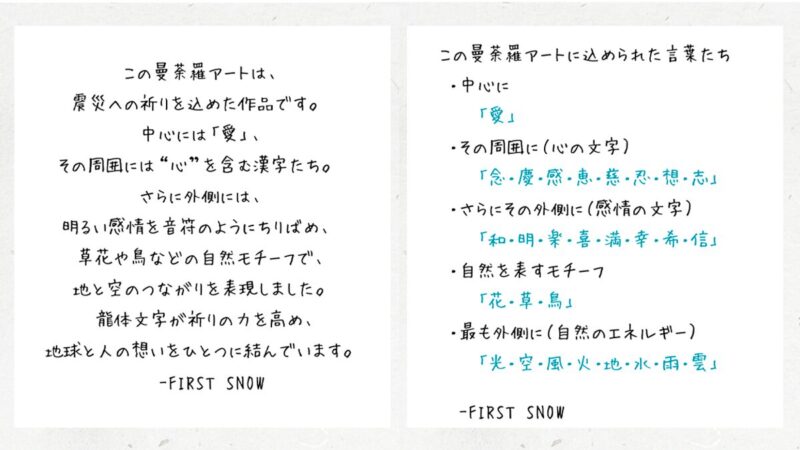 この曼荼羅アートは、
震災への祈りを込めた作品です。
中心には「愛」、
その周囲には“心”を含む漢字たち。
さらに外側には、
明るい感情を音符のようにちりばめ、
草花や鳥などの自然モチーフで、
地と空のつながりを表現しました。
龍体文字が祈りの力を高め、
地球と人の想いをひとつに結んでいます。
-FIRST SNOW
この曼荼羅アートに込められた言葉たち
・中心に
「愛」
・その周囲に(心の文字)
「念・慶・感・恵・慈・忍・想・志」
・さらにその外側に(感情の文字)
「和・明・楽・喜・満・幸・希・信」
・自然を表すモチーフ
「花・草・鳥」
・最も外側に(自然のエネルギー)
「光・空・風・火・地・水・雨・雲」
-FIRST SNOW